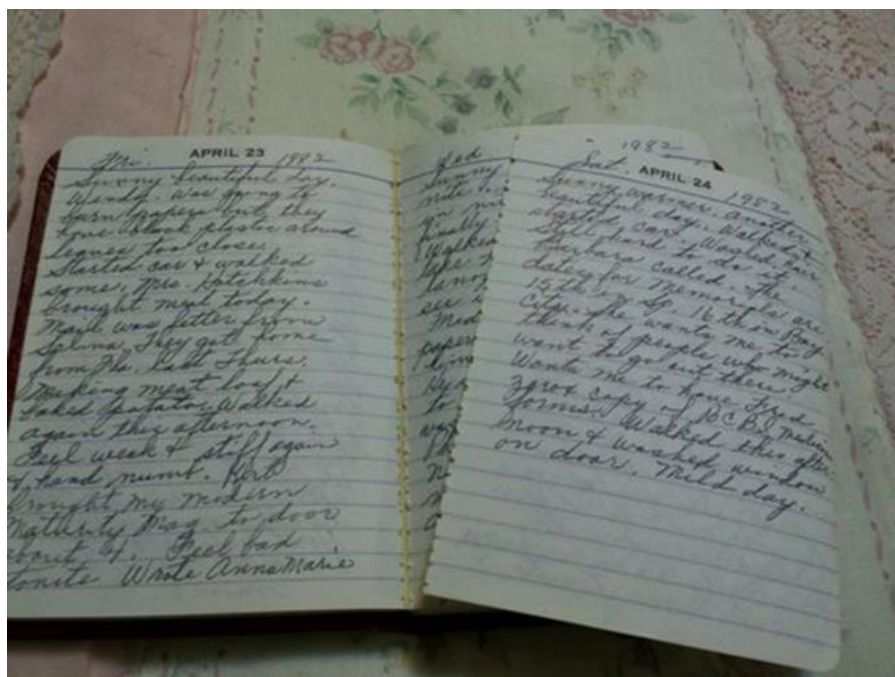 Fri. APRIL 23 1982
Sunny beautiful day.
Windy. Was going to
burn papers but they
have black plastic around
leaves too close.
Started car & walked
some. Mrs. Hotchkins
brought meal today.
Mail was letter from
Selina. They got home
from Fla. last Thurs.
Making meat loaf &
baked potato. Walked
again this afternoon.
Feel weak & stiff again
& hand numb. Kert
brought my modern
Maturity Mag. to door
about 4. Feel bad
tonite Wrote Anna Marie
Sunny
nite
on
finally
Walked
take
see
Mod
paper
to
1982
Sat. APRIL 24 1982
Sunny, warmer, another
beautiful day. Walked &
started car. Washed hair
still hard to do it.
Barbara called. The
dates for Memorials are
15th in Sp. 16th in Bay
City. She wants me to
think of people who might
want to go out there.
Wants me to have Fred
zerox copy of BCBS Medicine
forms. Walked this after
noon & washed window
on door. Mild day.